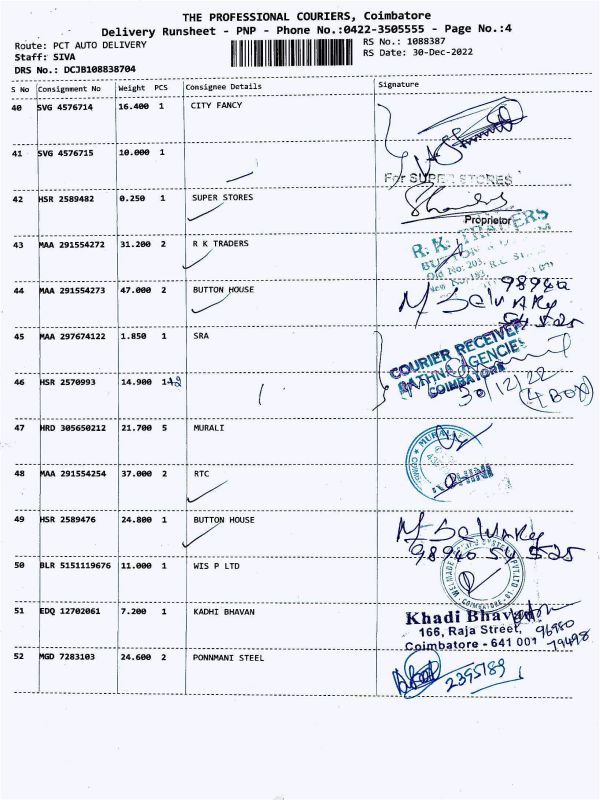 THE PROFESSIONAL COURIERS, Coimbatore
Delivery Runsheet - PNP - Phone No.:0422-3505555 - Page No.:4
Route: PCT AUTO DELIVERY RS No.: 1088387
Staff: SIVA RS Date: 30-Dec-2022
DRS No.: DCJB108838704
S No Consignment No Weight PCS Consignee Details Signature
40 SVG 4576714 16.400 1 CITY FANCY
41 SVG 4576715 10.000 1
For SUPER STORES
42 HSR 2589482 0.250 1 SUPER STORES
Proprietor
43 MAA 291554272 31.200 2 R K TRADERS
R. K. TRADERS
Old No: 203,
44 MAA 291554273 47.000 2 BUTTON HOUSE
98940
54 525
45 MAA 297674122 1.850 1 SRA
COURIER RECEIVED
RATHNA AGENCIES
COIMBATORE
46 HSR 2570993 14.900 1+2
30/12/22
(4 BOX)
47 HRD 305650212 21.700 5 MURALI
MURALI
48 MAA 291554254 37.000 2 RTC
49 HSR 2589476 24.800 1 BUTTON HOUSE
98940 54 525
50 BLR 5151119676 11.000 1 WIS P LTD
51 EDQ 12702061 7.200 1 KADHI BHAVAN
Khadi Bhavan
166, Raja Street, 96980
Coimbatore - 641 001 79498
52 MGD 7283103 24.600 2 PONNMANI STEEL
2395789